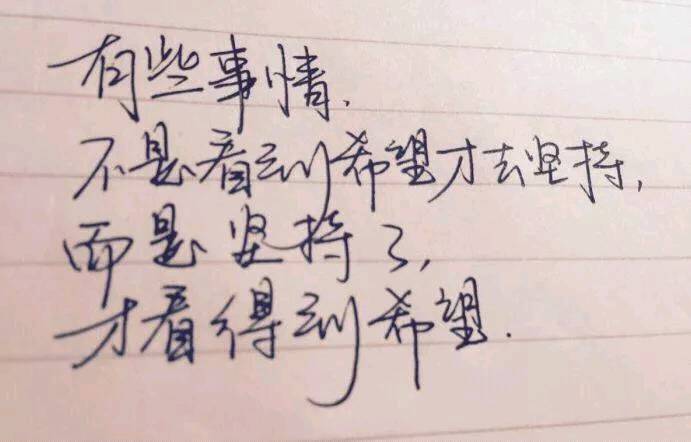 有些事情.
不是看到希望才去坚持,
而是坚持了,
才看得到希望.